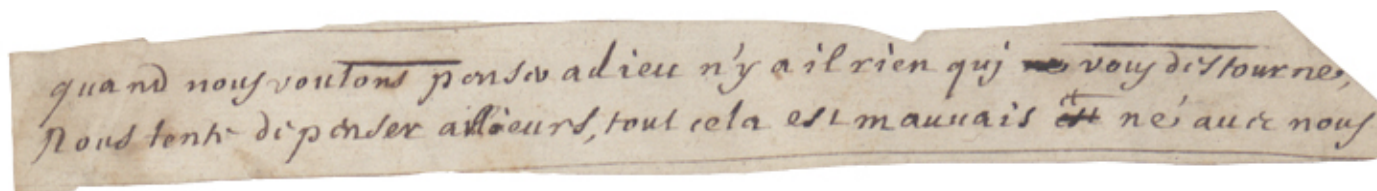 quand nous voulons penser a dieu n'y a il rien qui vous destourne,
Nous tente de penser ailleurs, tout cela est mauvais et né avec nous